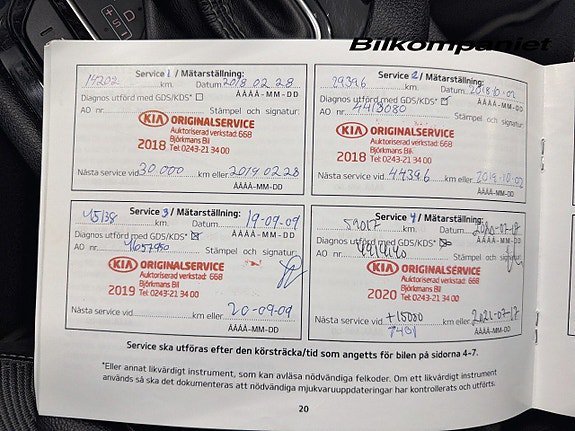 Bilkompaniet
Service 1 / Mätarställning:
14202 km. Datum 2018 02 28
ÅÅÅÅ-MM-DD
Diagnos utförd med GDS/KDS*
AO nr. Stämpel och signatur:
KIA ORIGINALSERVICE
Auktoriserad verkstad: 668
Björkmans Bil
2018 Tel: 0243-21 34 00
Nästa service vid 30.000 km eller 2019 02 28
ÅÅÅÅ-MM-DD
Service 2 / Mätarställning:
29396 km. Datum 2018 10 02
ÅÅÅÅ-MM-DD
Diagnos utförd med GDS/KDS*
AO nr. 4413080 Stämpel och signatur:
KIA ORIGINALSERVICE
Auktoriserad verkstad: 668
Björkmans Bil
2018 Tel: 0243-21 34 00
Nästa service vid 44396 km eller 2019-10-02
ÅÅÅÅ-MM-DD
Service 3 / Mätarställning:
45138 km. Datum 19-09-09
ÅÅÅÅ-MM-DD
Diagnos utförd med GDS/KDS*
AO nr. 4657950 Stämpel och signatur:
KIA ORIGINALSERVICE
Auktoriserad verkstad: 668
Björkmans Bil
2019 Tel: 0243-21 34 00
Nästa service vid km eller 20-09-09
ÅÅÅÅ-MM-DD
Service 4 / Mätarställning:
59017 km. Datum 2020-07-17
ÅÅÅÅ-MM-DD
Diagnos utförd med GDS/KDS*
AO nr. Stämpel och signatur:
KIA ORIGINALSERVICE
Auktoriserad verkstad: 668
Björkmans Bil
2020 Tel: 0243-21 34 00
Nästa service vid +15000 km eller 2021-07-17
ÅÅÅÅ-MM-DD
Service ska utföras efter den körsträcka/tid som angetts för bilen på sidorna 4-7.
*Eller annat likvärdigt instrument, som kan avläsa nödvändiga felkoder. Om ett likvärdigt instrument
används så ska det dokumenteras att nödvändiga mjukvaruuppdateringar har kontrollerats och utförts.
20